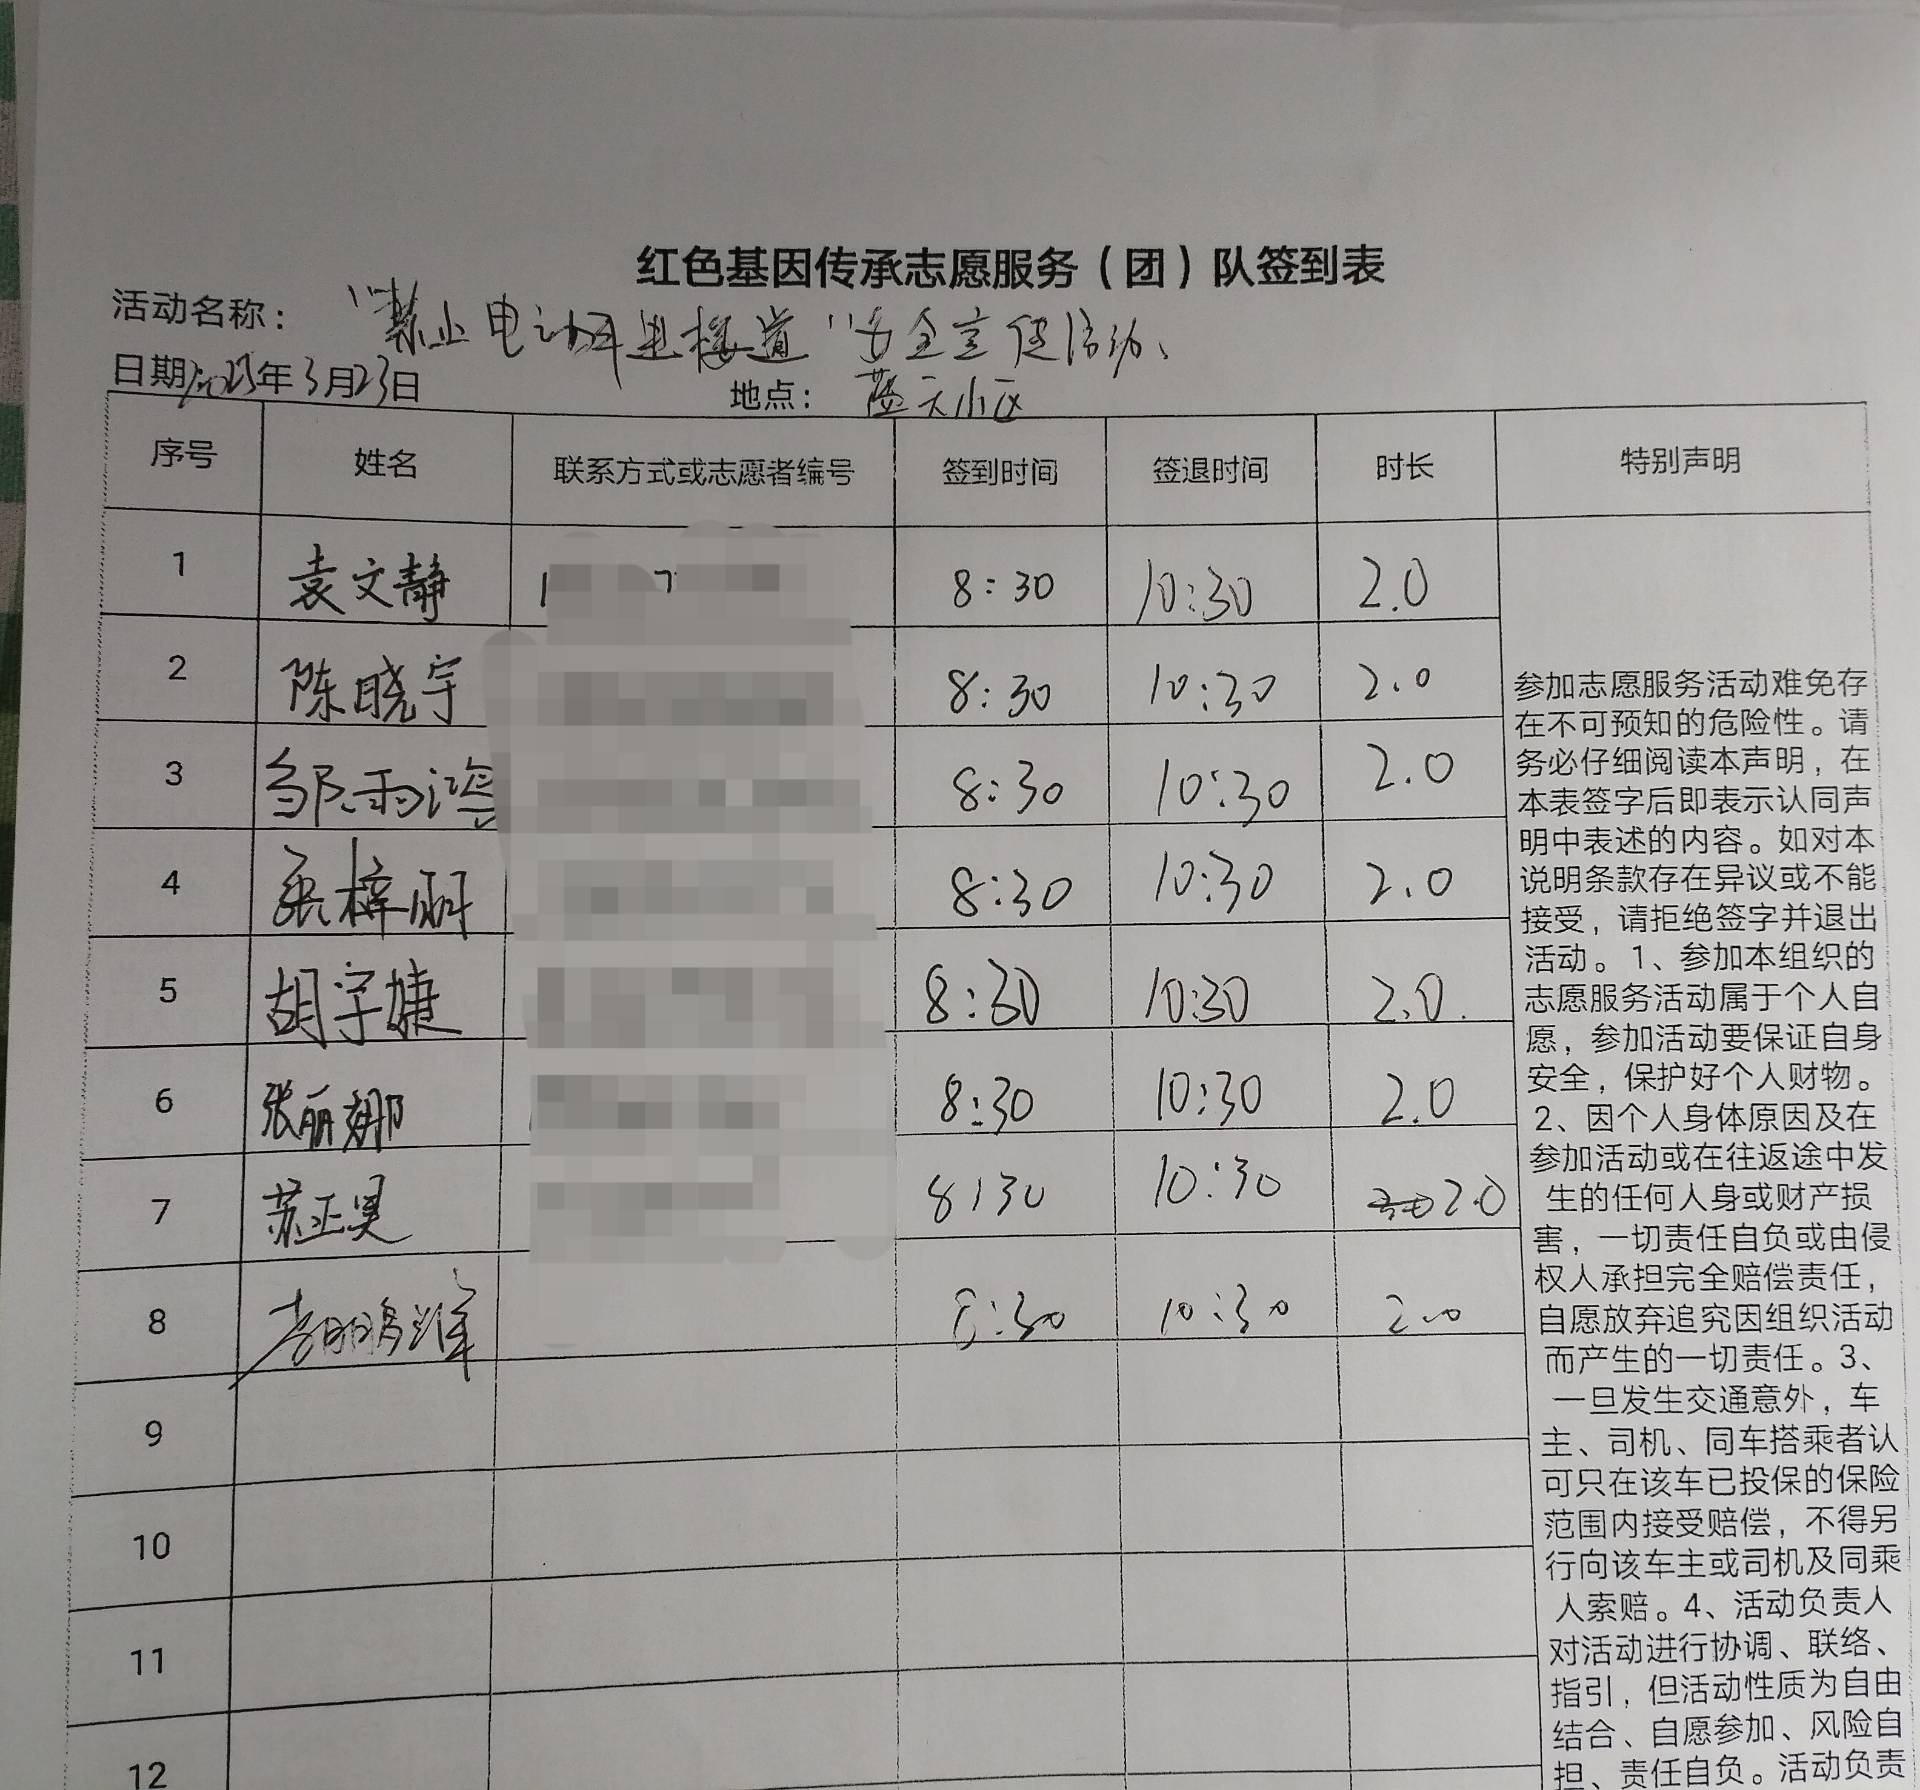 红色基因传承志愿服务（团）队签到表
活动名称： “禁止电动车进楼道”安全宣传活动、
日期：2025年3月23日 地点： 蓝天小区
序号 姓名 联系方式或志愿者编号 签到时间 签退时间 时长 特别声明
1 袁文静 8:30 10:30 2.0
2 陈晓宇 8:30 10:30 2.0
3 邹雨 8:30 10:30 2.0
4 张梓丽 8:30 10:30 2.0
5 胡宇婕 8:30 10:30 2.0
6 张丽娜 8:30 10:30 2.0
7 苏正昊 8:30 10:30 2.0
8 8:30 10:30 2.0
9
10
11
12
参加志愿服务活动难免存
在不可预知的危险性。请
务必仔细阅读本声明，在
本表签字后即表示认同声
明中表述的内容。如对本
说明条款存在异议或不能
接受，请拒绝签字并退出
活动。1、参加本组织的
志愿服务活动属于个人自
愿，参加活动要保证自身
安全，保护好个人财物。
2、因个人身体原因及在
参加活动或在往返途中发
生的任何人身或财产损
害，一切责任自负或由侵
权人承担完全赔偿责任，
自愿放弃追究因组织活动
而产生的一切责任。3、
一旦发生交通意外，车
主、司机、同车搭乘者认
可只在该车已投保的保险
范围内接受赔偿，不得另
行向该车主或司机及同乘
人索赔。4、活动负责人
对活动进行协调、联络、
指引，但活动性质为自由
结合、自愿参加、风险自
担、责任自负。活动负责